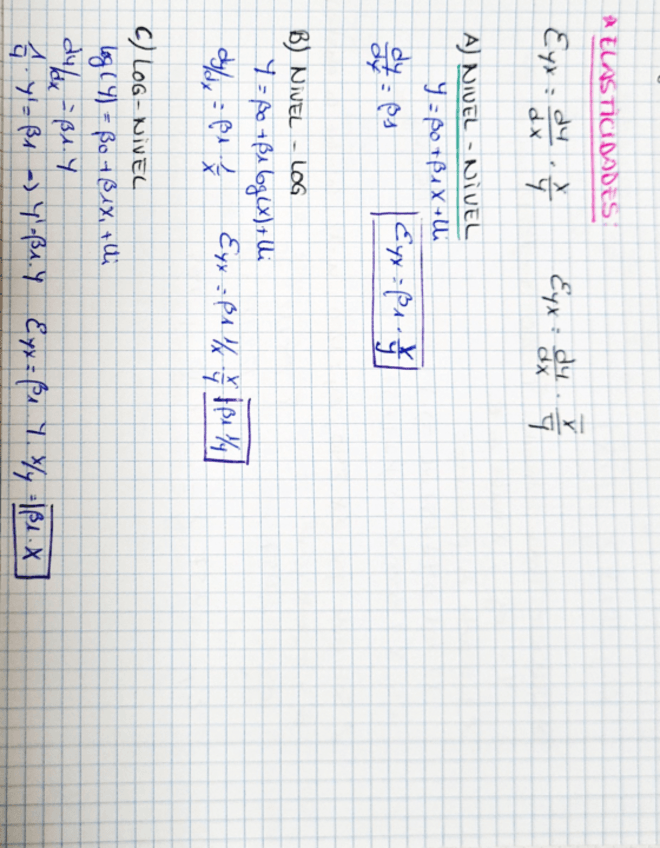 * ELASTICIDADES:
Eyx = dy/dx · x/y   Eyx = dy/dx · x̄/ȳ
A) NIVEL - NIVEL
y = β0 + β1X + Ui
dy/dx = β1   Eyx = β1 · x/y
B) NIVEL - LOG
Y = β0 + β1 log(x) + Ui
dy/dx = β1 · 1/x   Eyx = β1 1/x x/y β1 1/y
C) LOG - NIVEL
log(Y) = β0 + β1X1 + Ui
dy/dx = β1 · Y
1/y · y' = β1 → y' = β1 · Y   Eyx = β1 · Y · x/y = β1 · X